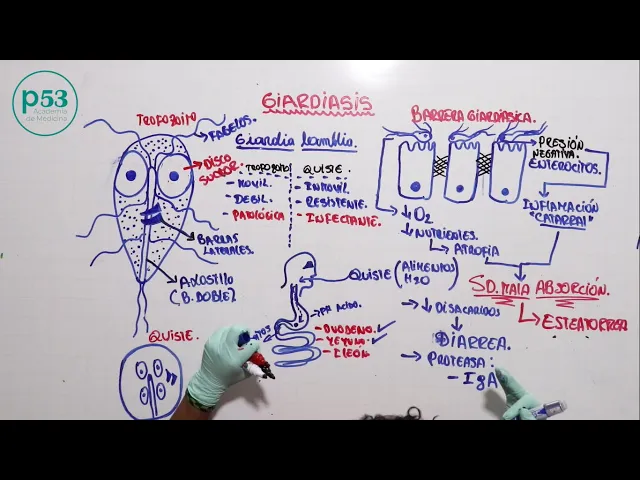 p53
Academia
de Medicina
GIARDIASIS
TROFOZOITO
FAGELOS.
Giardia lamblia.
DISCO
SUCTOR.
TROFOZOITO
- MOVIL.
- DEBIL.
- PATOLÓGICA
QUISTE.
- INMOVIL.
- RESISTENTE.
- INFECTANTE.
BARRAS
LATERALES.
AXOSTILO
(B. DOBLE)
QUISTE.
BARRERA GIARDIASICA.
PRESIÓN
NEGATIVA.
ENTEROCITOS.
INFLAMACIÓN
"CATARRAL"
↓ O2
↓ NUTRIENTES.
ATROFIA
SD. MALA ABSORCIÓN.
ESTEATORREA
QUISTE (ALIMENTOS)
H2O
PH ACIDO.
- DUODENO. ✓
- YEYUNO. ✓
- ILEÓN.
→ ↓ DISACARIDOS
DIARREA.
→ PROTEASA:
- IgA